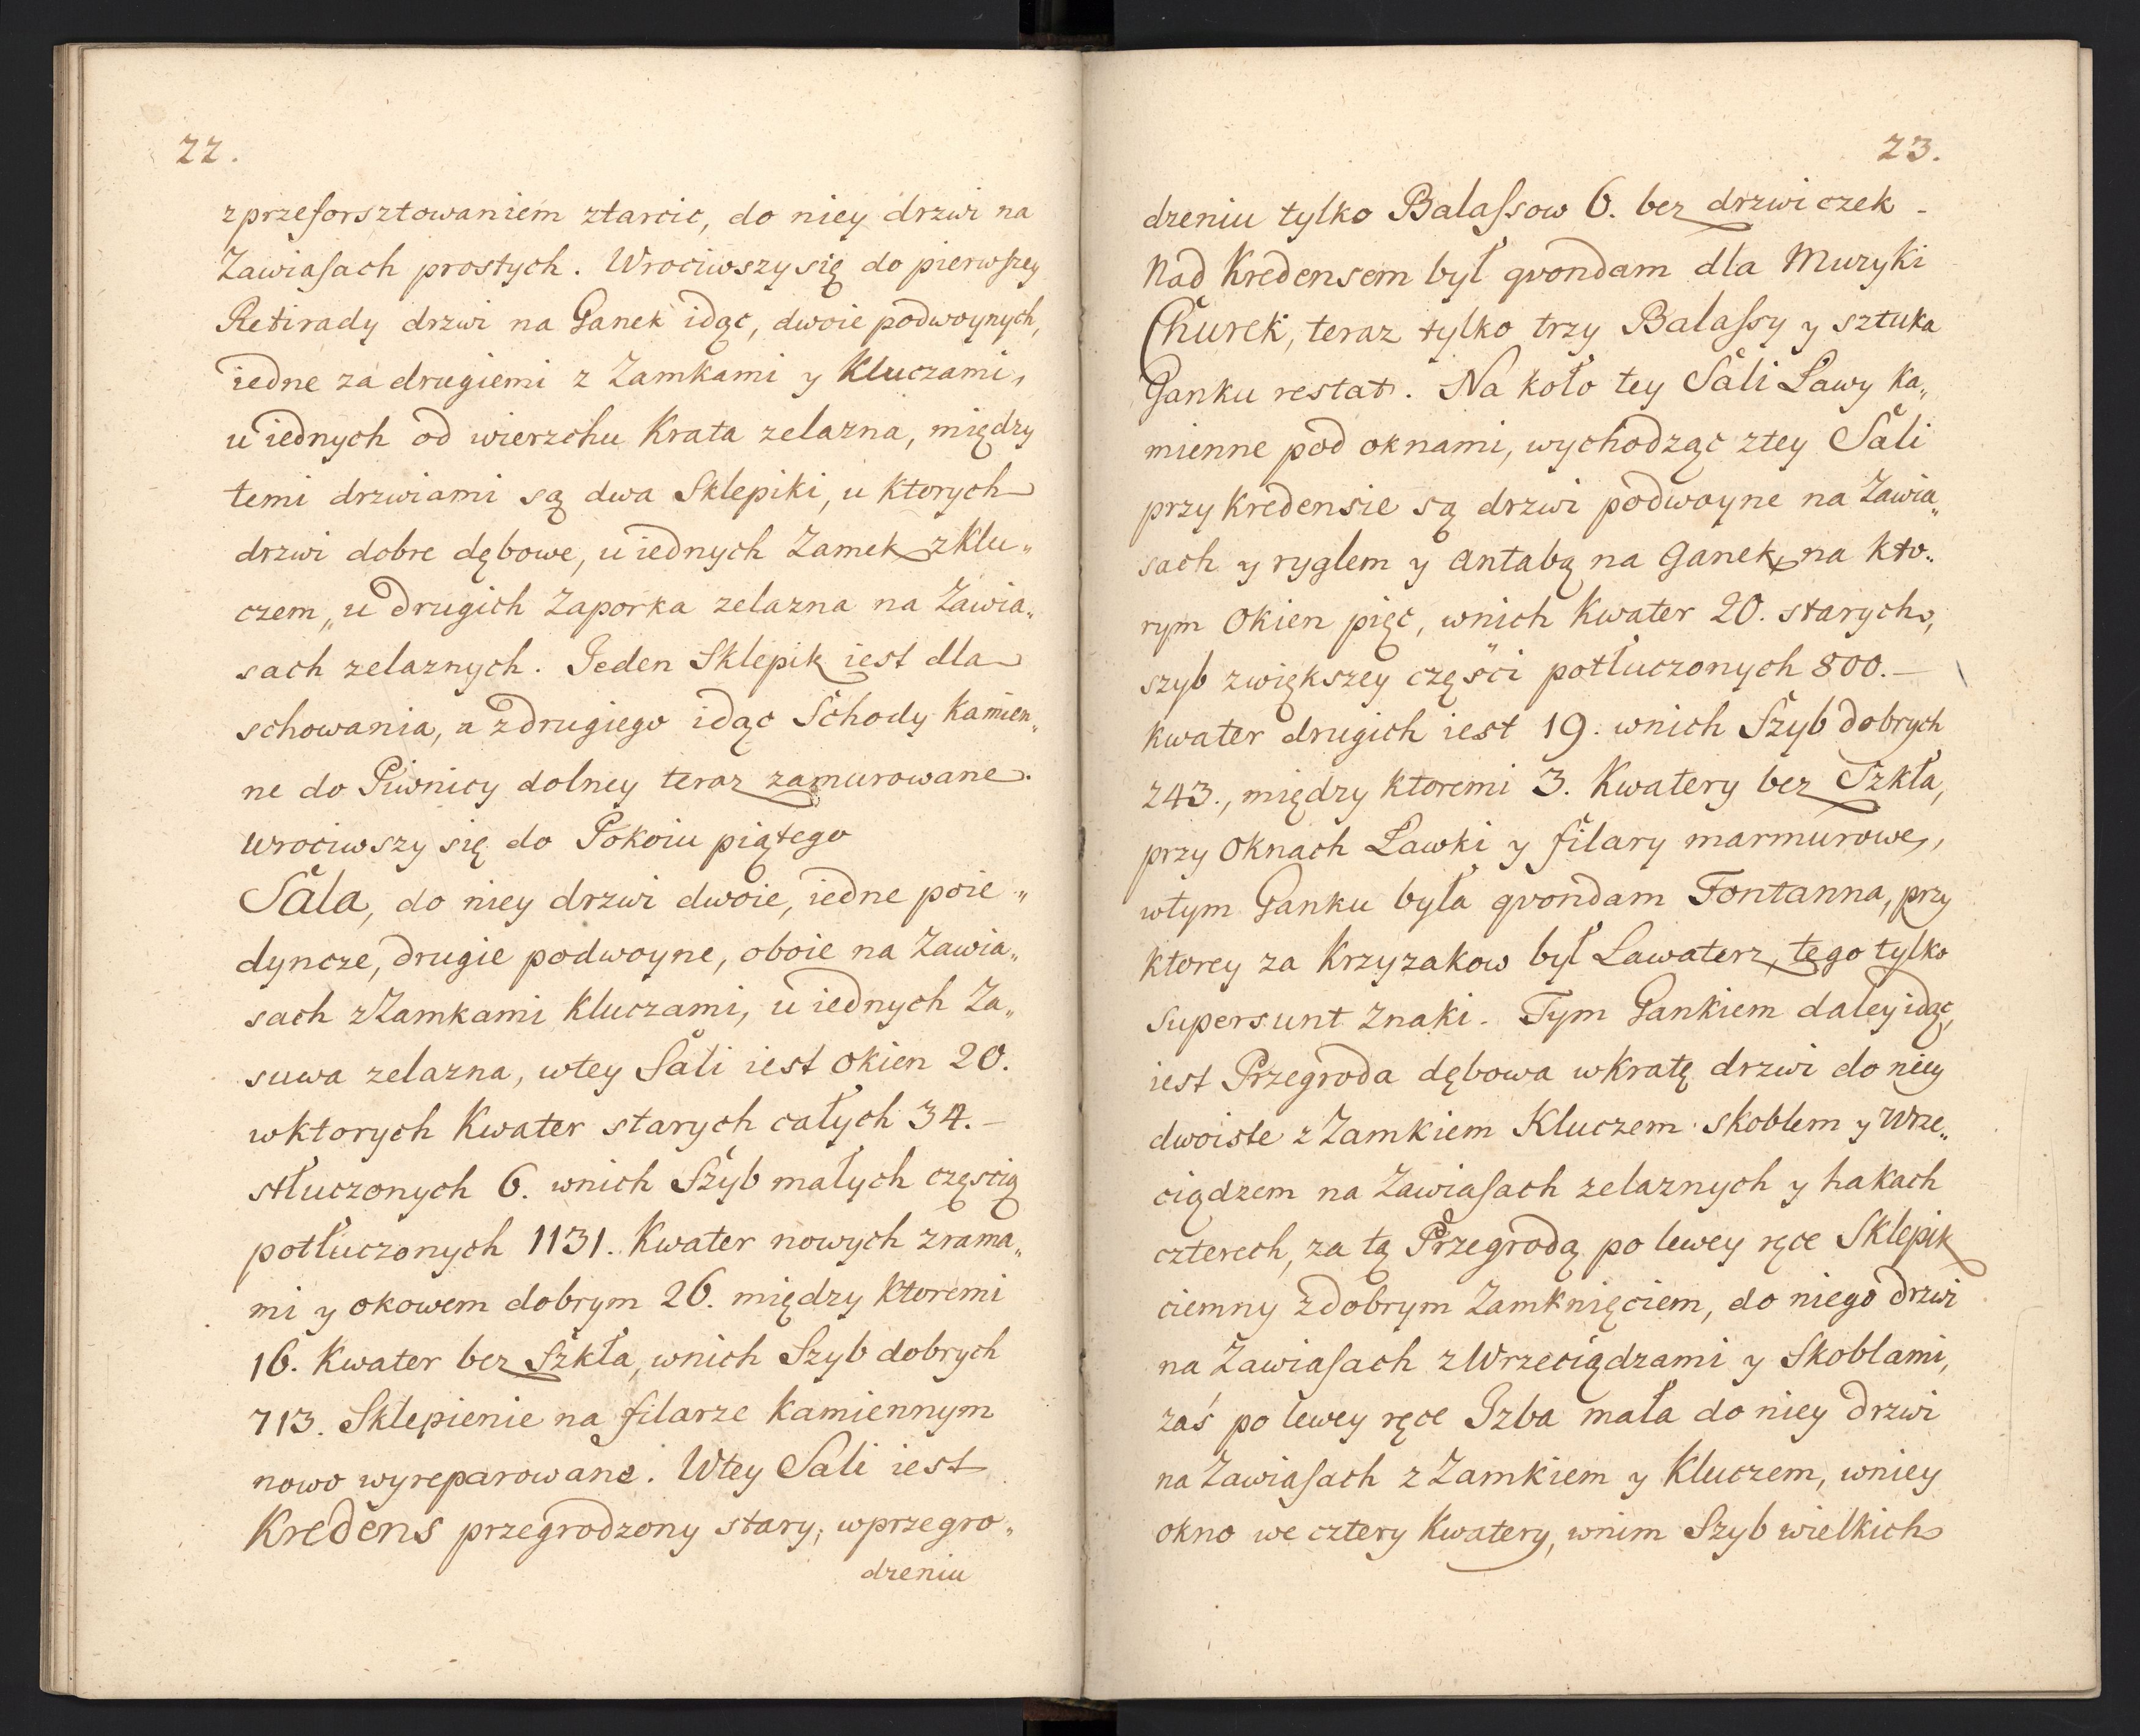 22.
zprzeforsztowaniem ztarcic, do niey drzwi na
Zawiasach prostych. Wrociwszy się do pierwszey
Retirady drzwi na Ganek idąc, dwoie podwoynych,
iedne za drugiemi z Zamkami y Kluczami,
u iednych od wierzchu Krata zelazna, między
temi drzwiami są dwa Sklepiki, u ktorych
drzwi dobre dębowe, u iednych Zamek z Klu„
czem, u drugich Zaporka zelazna na Zawia„
sach zelaznych. Jeden Sklepik iest dla
schowania, a zdrugiego idąc Schody Kamien„
ne do Piwnicy dolney teraz zamurowane.
Wrociwszy się do Pokoiu piątego
Sala, do niey drzwi dwoie, iedne poie„
dyncze, drugie podwoyne, oboie na Zawia„
sach z Zamkami Kluczami, u iednych Za„
suwa zelazna, wtey Sali iest okien 20.
wktorych Kwater starych całych 34.–
stłuczonych 6. wnich Szyb małych częscią
potłuczonych 1131. Kwater nowych zrama„
mi y okowem dobrym 26. między ktoremi
16. Kwater bez Szkła, wnich Szyb dobrych
713. Sklepienie na filarze kamiennym
nowo wyreparowane. Wtey Sali iest
Kredens przegrodzony stary, wprzegro„
dzeniu
23.
dzeniu tylko Balassow 6. bez drzwiczek –
Nad Kredensem był qvondam dla Muzyki
Churek, teraz tylko trzy Balassy y sztuka
Ganku restat. Na koło tey Sali Ławy ka„
mienne pod oknami, wychodząc ztey Sali
przy Kredensie są drzwi podwoyne na Zawia„
sach y ryglem y antabą na Ganek, na kto„
rym Okien pięc, wnich Kwater 20. starych,
szyb zwiększey części potłuczonych 800.–
kwater drugich iest 19. wnich Szyb dobrych
243., między ktoremi 3. Kwatery bez Szkła,
przy Oknach Ławki y filary marmurowe,
wtym Ganku była qvondam Fontanna, przy
ktorey za Krzyzakow był Lawaterz, tego tylko
supersunt Znaki. Tym Gankiem daley idąc,
iest Przegroda dębowa wkratę drzwi do niey
dwoiste z Zamkiem Kluczem skoblem y Wrze„
ciądzem na Zawiasach zelaznych y hakach
czterech, za tą Przegrodą po lewey ręce Sklepik
ciemny zdobrym Zamknięciem, do niego drzwi
na Zawiasach z Wrzeciądzami y Skoblami,
zaś po lewey ręce Izba mała do niey drzwi
na Zawiasach z Zamkiem y Kluczem, wniey
okno we cztery Kwatery, wnim Szyb wielkich